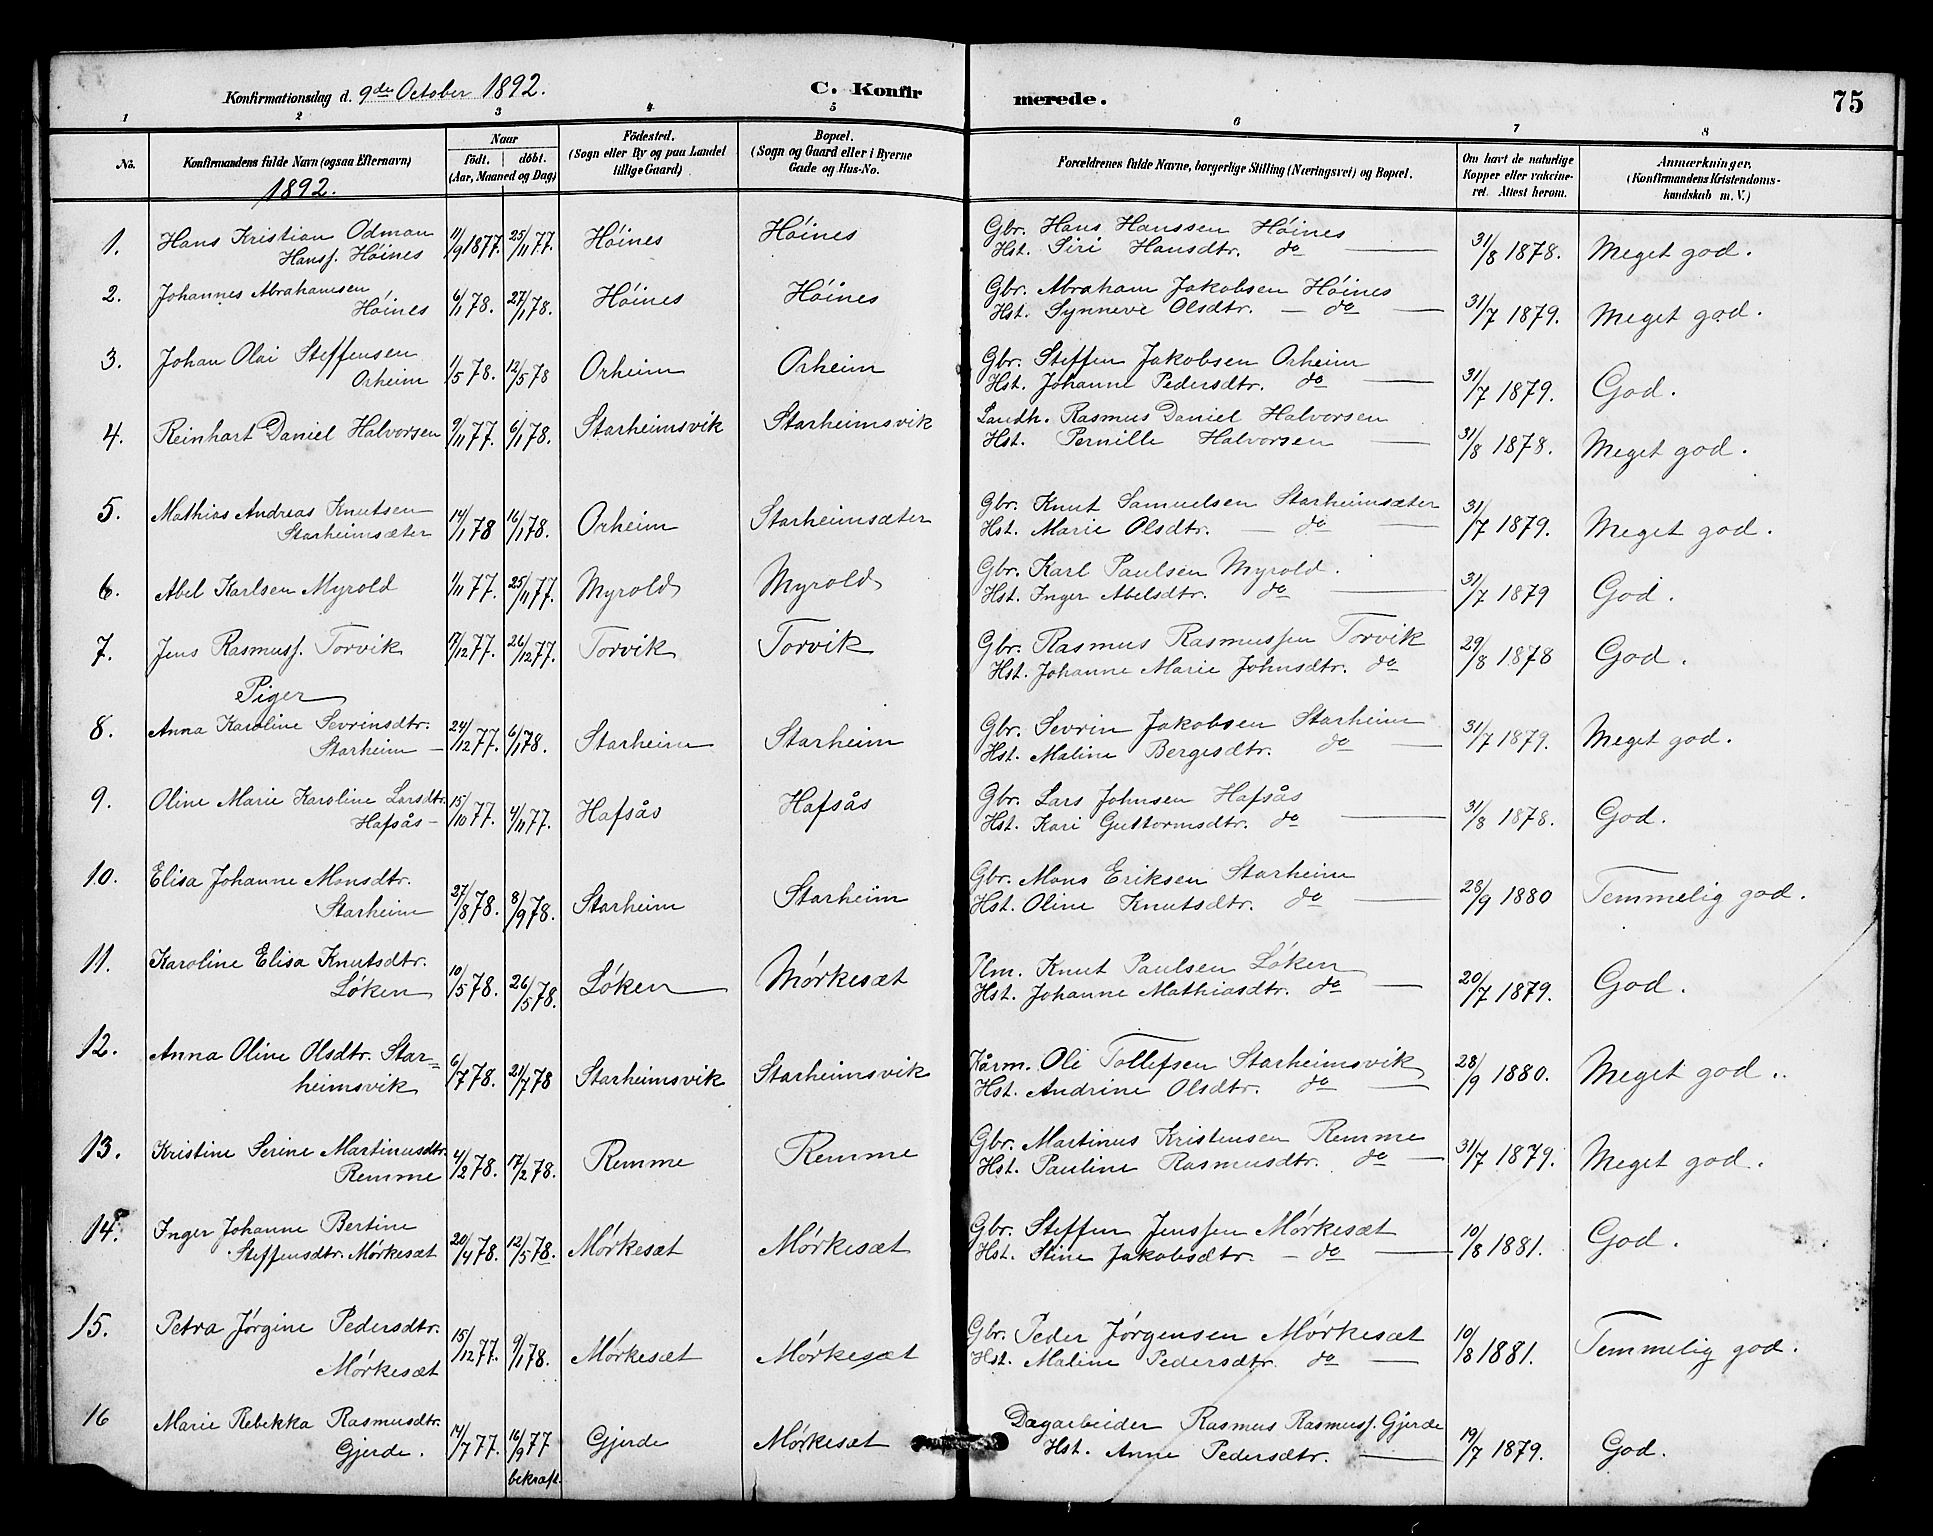 Konfirmationsdag d. 9de October 1892. C. Konfirmerede. 75
1 2 3 4 5 6 7 8
No. Konfirmandens fulde Navn (ogsaa Efternavn) Naar født. døbt. (Aar, Maaned og Dag) Födested. (Sogn eller By og paa Landet tillige Gaard) Bopæl. (Sogn og Gaard eller i Byerne Gade og Hus-No. Forældrenes fulde Navne, borgerlige Stilling (Næringsvei) og Bopæl. Om havt de naturlige Kopper eller vakcineret. Attest herom. Anmærkninger. (Konfirmandens Kristendomskundskab m. V.)
1892.
1. Hans Kristian Odman 11/9 1877. 25/11 77. Höines Höines Gbr. Hans Hanssen Höines 31/8 1878. Meget god.
Hansf. Höines Hst. Siri Hansdtr. do
2. Johannes Abrahamsen 6/1 78. 27/1 78. Höines Höines Gbr. Abraham Jakobsen Höines 31/7 1879. Meget god.
Höines Hst. Synneve Olsdtr. — do
3. Johan Olai Steffensen 1/5 78. 12/5 78 Orheim Orheim Gbr. Steffen Jakobsen Orheim 31/7 1879. God.
Orheim Hst. Johanne Pedersdtr. do
4. Reinhart Daniel Halvorsen 9/11 77. 6/1 78. Starheimsvik Starheimsvik Landh. Rasmus Daniel Halvorsen 31/8 1878. Meget god.
Hst. Pernille Halvorsen
5. Mathias Andreas Knutsen 14/1 78 16/1 78. Orheim Starheimsæter Gbr. Knut Samuelsen Starheimsæter 31/7 1879. Meget god.
Starheimsæter Hst. Marie Olsdtr. — do
6. Abel Karlsen Myrold 1/11 77. 25/11 77. Myrold Myrold Gbr. Karl Paulsen Myrold. 31/7 1879 God.
Hst. Inger Abelsdtr. do
7. Jens Rasmusf. Torvik 17/12 77. 26/12 77. Torvik Torvik Gbr. Rasmus Rasmussen Torvik 29/8 1878 God.
Hst. Johanne Marie Johnsdtr. do
Piger
8. Anna Karoline Sevrinsdtr. 24/12 77. 6/1 78. Starheim Starheim Gbr. Sevrin Jakobsen Starheim 31/7 1879. Meget god.
Starheim — Hst. Maline Bergesdtr. do
9. Oline Marie Karoline Larsdtr. 15/10 77. 4/11 77. Hafsås Hafsås Gbr. Lars Johnsen Hafsås 31/8 1878. God.
Hafsås — Hst. Kari Guttormsdtr. do
10. Elisa Johanne Monsdtr. 27/8 78. 8/9 78. Starheim Starheim Gbr. Mons Eriksen Starheim 28/9 1880 Temmelig god.
Starheim Hst. Oline Knutsdtr. do
11. Karoline Elisa Knutsdtr. 10/5 78. 26/5 78. Löken Mörkesæt Plm. Knut Paulsen Löken 20/7 1879. God.
Löken Hst. Johanne Mathiasdtr. do
12. Anna Oline Olsdtr. Star- 6/7 78. 21/7 78 Starheimsvik Starheimsvik Kårm. Ole Tollefsen Starheimsvik 28/9 1880. Meget god.
heimsvik Hst. Andrine Olsdtr. do
13. Kristine Serine Martinusdtr. 4/2 78. 17/2 78. Remme Remme Gbr. Martinus Kristensen Remme 31/7 1879. Meget god.
Remme Hst. Pauline Rasmusdtr. do
14. Inger Johanne Bertine 20/4 78. 12/5 78. Mörkesæt Mörkesæt Gbr. Steffen Jenssen Mörkesæt 10/8 1881. God.
Steffensdtr. Mörkesæt Hst. Stine Jakobsdtr. — do
15. Petra Jörgine Pedersdtr. 15/12 77. 9/1 78. Mörkesæt Mörkesæt Gbr. Peder Jörgensen Mörkesæt 10/8 1881. Temmelig god.
Mörkesæt Hst. Maline Pedersdtr. do
16 Marie Rebekka Rasmusdtr. 14/7 77. 16/9 77 Gjerde Mörkesæt Dagarbeider Rasmus Rasmusf. Gjerde 19/7 1879. God.
Gjerde. bekræft. Hst. Anne Pedersdtr.